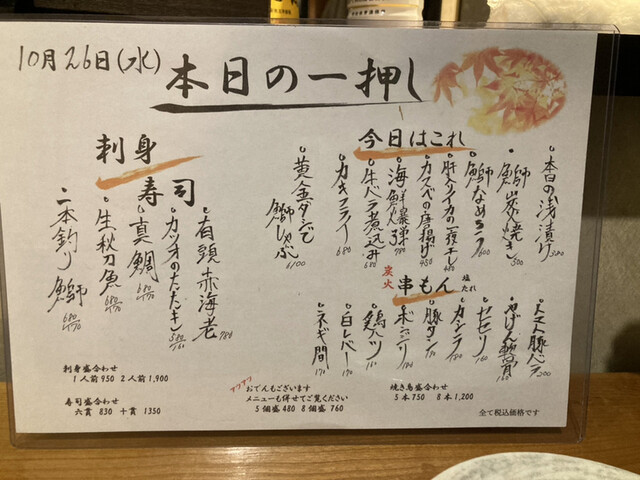 10月26日(水)
本日の一押し
今日はこれ
本日の浅漬け
鰤炭焼き 500
鰤なめろう 600
肝入りイカの一夜干し 480
カスベの唐揚げ 450
海鮮爆弾 780
牛バラ煮込み 680
カキフライ 680
黄金ダシで
鰤しゃぶ 1100
刺身
寿司
有頭赤海老 780
カツオのたたき
真鯛
生秋刀魚
一本釣り鰤
炭火
串もん
塩
たれ
トマト豚バラ
やげん軟骨
セセリ
カシラ
豚タン
ボンジリ
鶏ハツ
白レバー 170
ネギ間 170
刺身盛合わせ
1人前950 2人前1,900
寿司盛合わせ
六貫 830 十貫 1350
アツアツ
おでんもございます
メニューも併せてご覧ください
5個盛480 8個盛760
焼き鳥盛合わせ
5本750 8本1,200
全て税込価格です